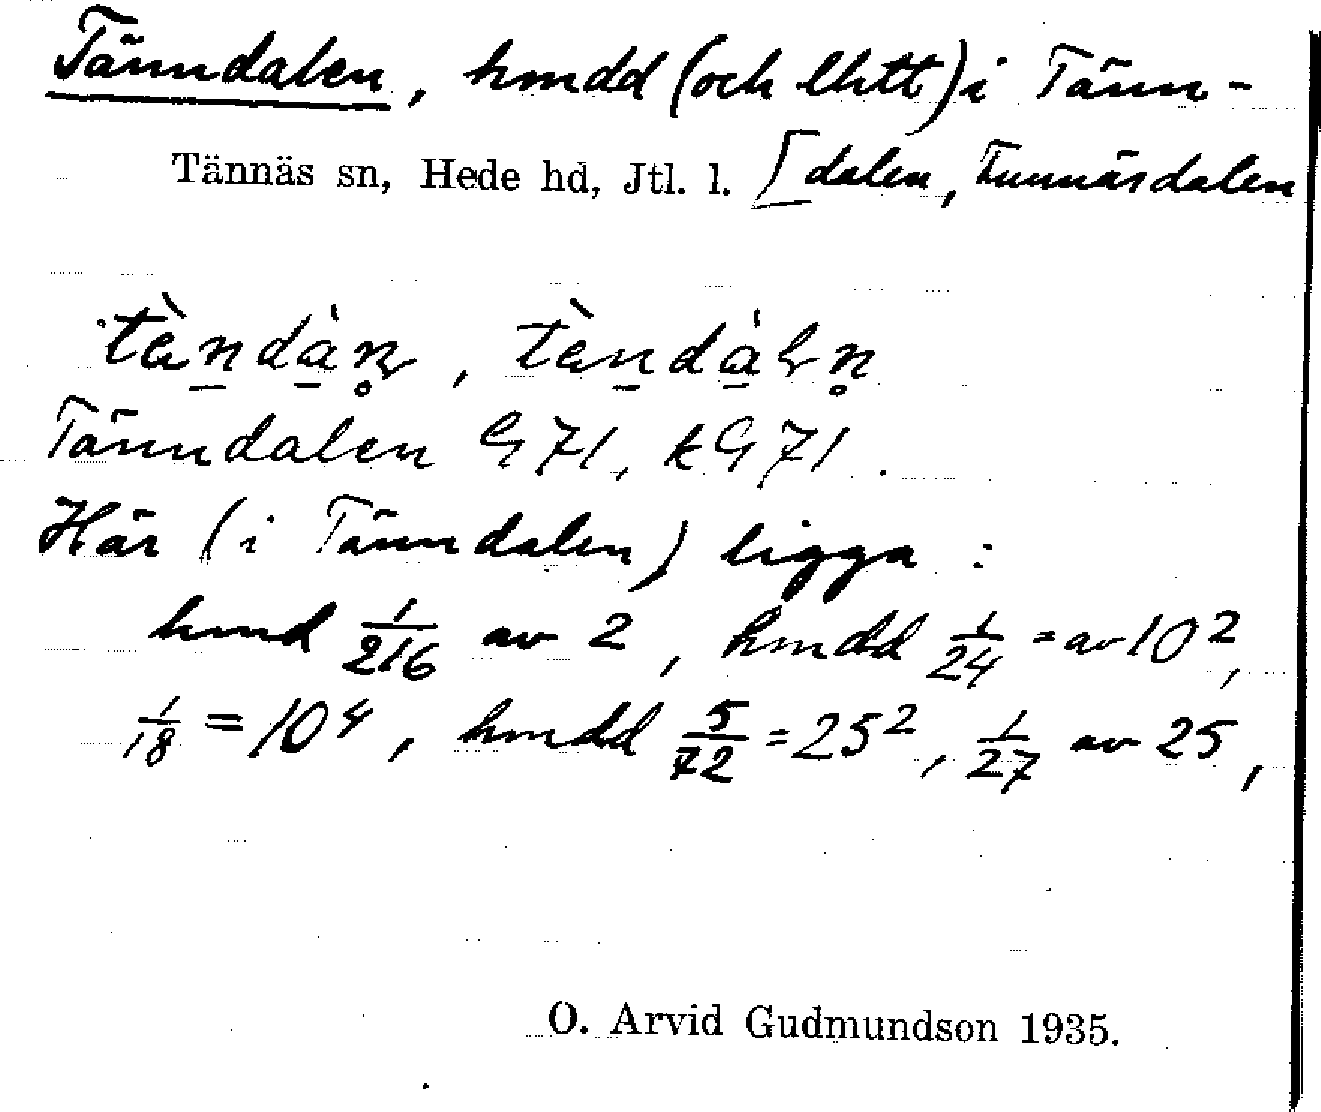 Tänndalen, hmdd (och lhtt) i Tänn-
Tännäs sn, Hede hd, Jtl. l. [dalen, Tännäsdalen
Tänndalen G 71, kG 71.
Här (i Tänndalen) ligga:
hmd 1/216 av 2, hmdd 1/24 = av 10²,
1/18 = 10⁴, hmdd 5/72 = 25², 1/27 av 25,
O. Arvid Gudmundson 1935.